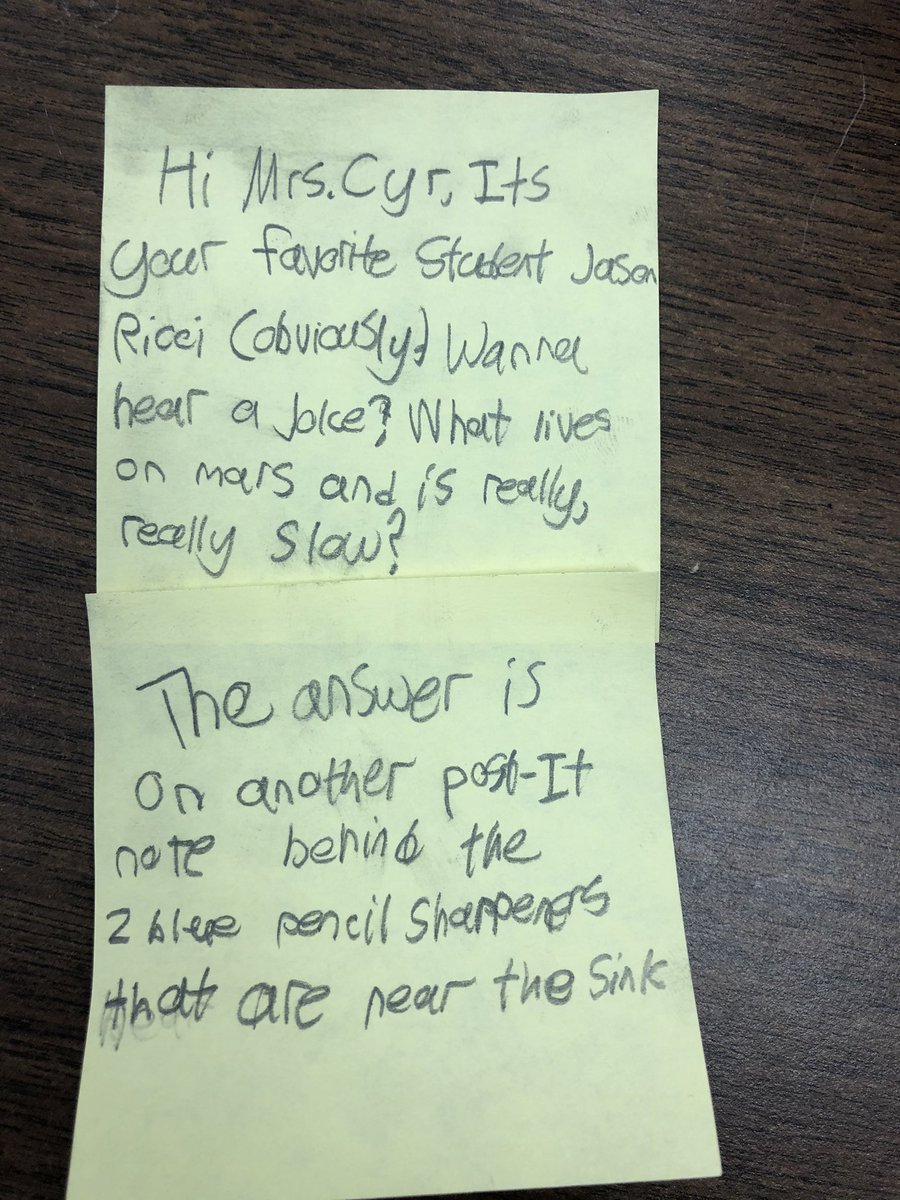 Hi Mrs. Cyr, Its
your favorite Student Jason
Ricci (obviously.) Wanna
hear a Joke? What lives
on mars and is really,
really Slow?
The answer is
On another post-It
note behind the
2 blue pencil Sharpeners
that are near the Sink